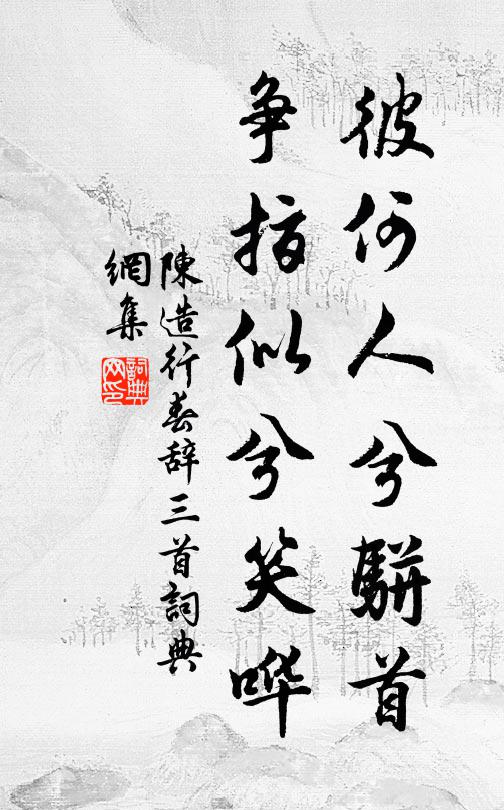 彼何人兮駢首
争指似兮笑哗
陳造行春辞三首詞典
網集
詞典
网印